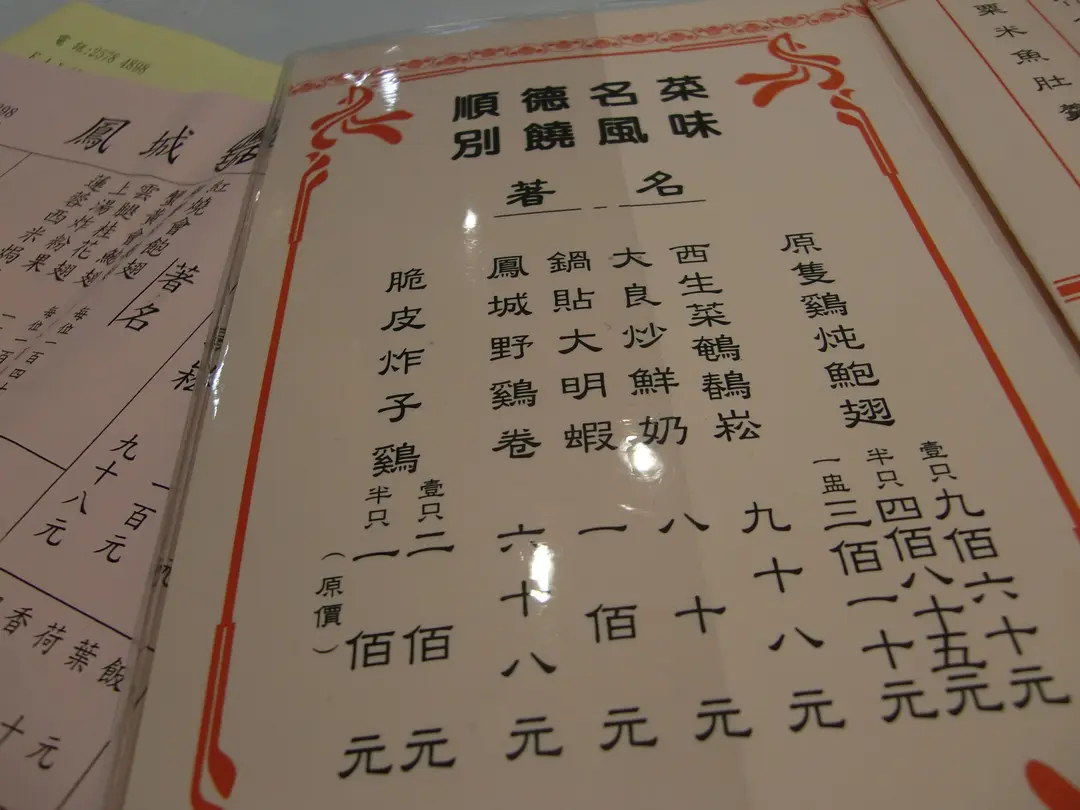 粟米魚肚羹
順德名菜
別饒風味
著-名
原隻鷄炖鮑翅
壹只九佰六十元
半只四佰八十五元
一盅三佰一十元
西生菜鵪鶉崧 九十八元
大良炒鮮奶 八十元
鍋貼大明蝦 一佰元
鳳城野鷄卷 六十八元
脆皮炸子鷄
壹只二佰元
半只一佰元
(原價)
電話:2578 4898
鳳城
著名
每位一百四十
每位
一百元
九十八元
香荷葉飯
十元